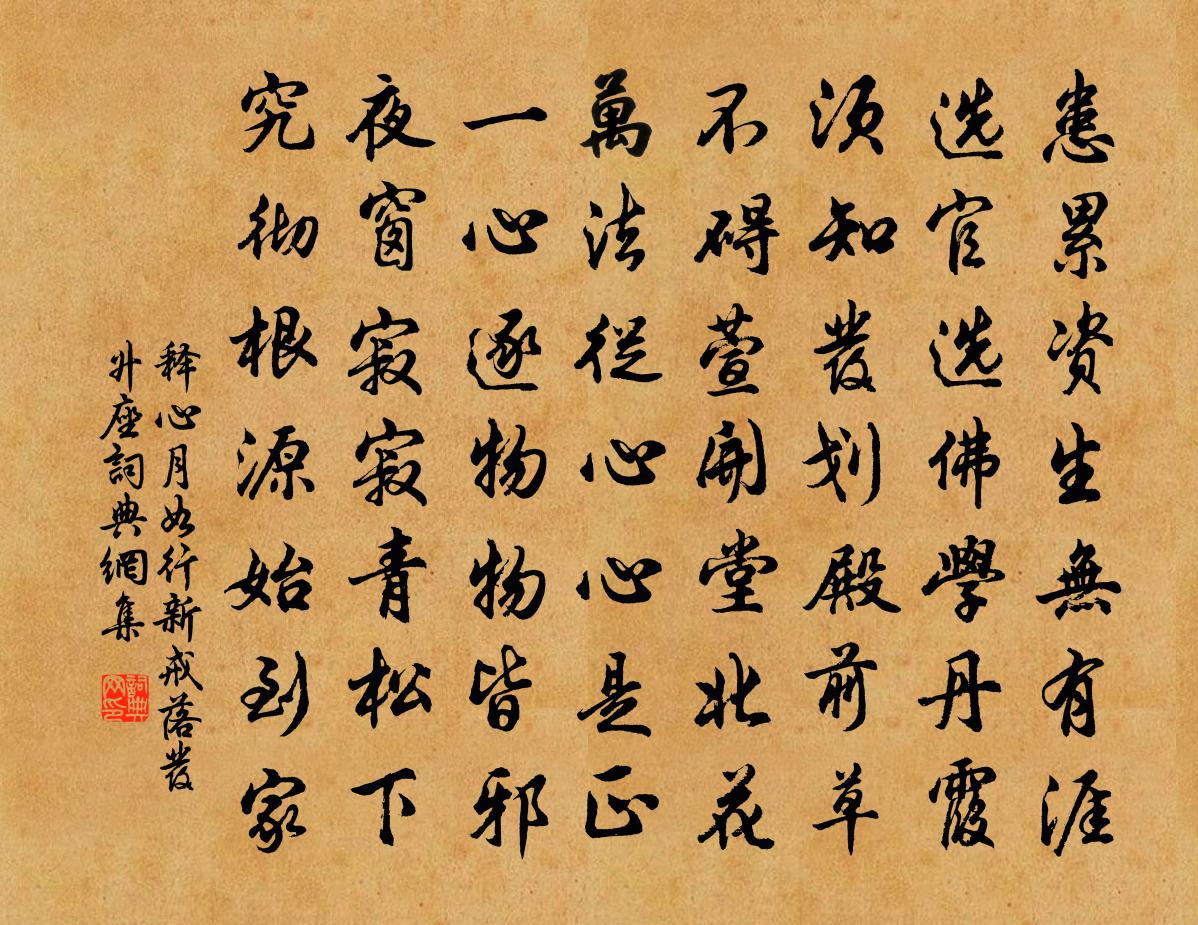 患累资生無有涯
选官选佛學丹霞
须知發划殿前草
不碍萱開堂北花
萬法從心心是正
一心逐物物皆邪
夜窗寂寂青松下
究彻根源始到家
释心月如行新戒落發
升座詞典網集
詞典网印